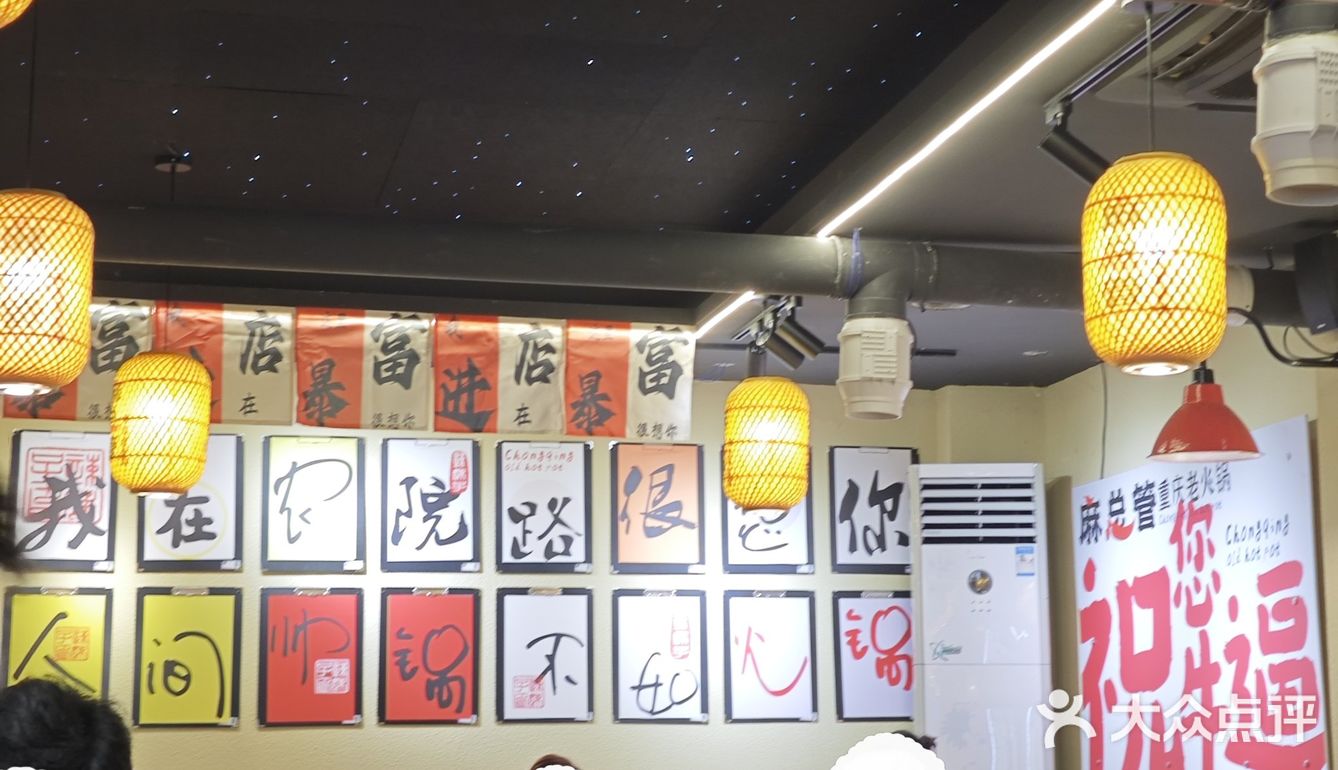 富 店 暴 富 进 店 暴 富
在 很想你 在 很想你
我 在 农 院 路 很 想 你
Chongqing
old hot pot
人 间 帅 锅 不 如 火 锅
麻总管重庆老火锅
Chongqing
old hot pot
祝您幸福
大众点评